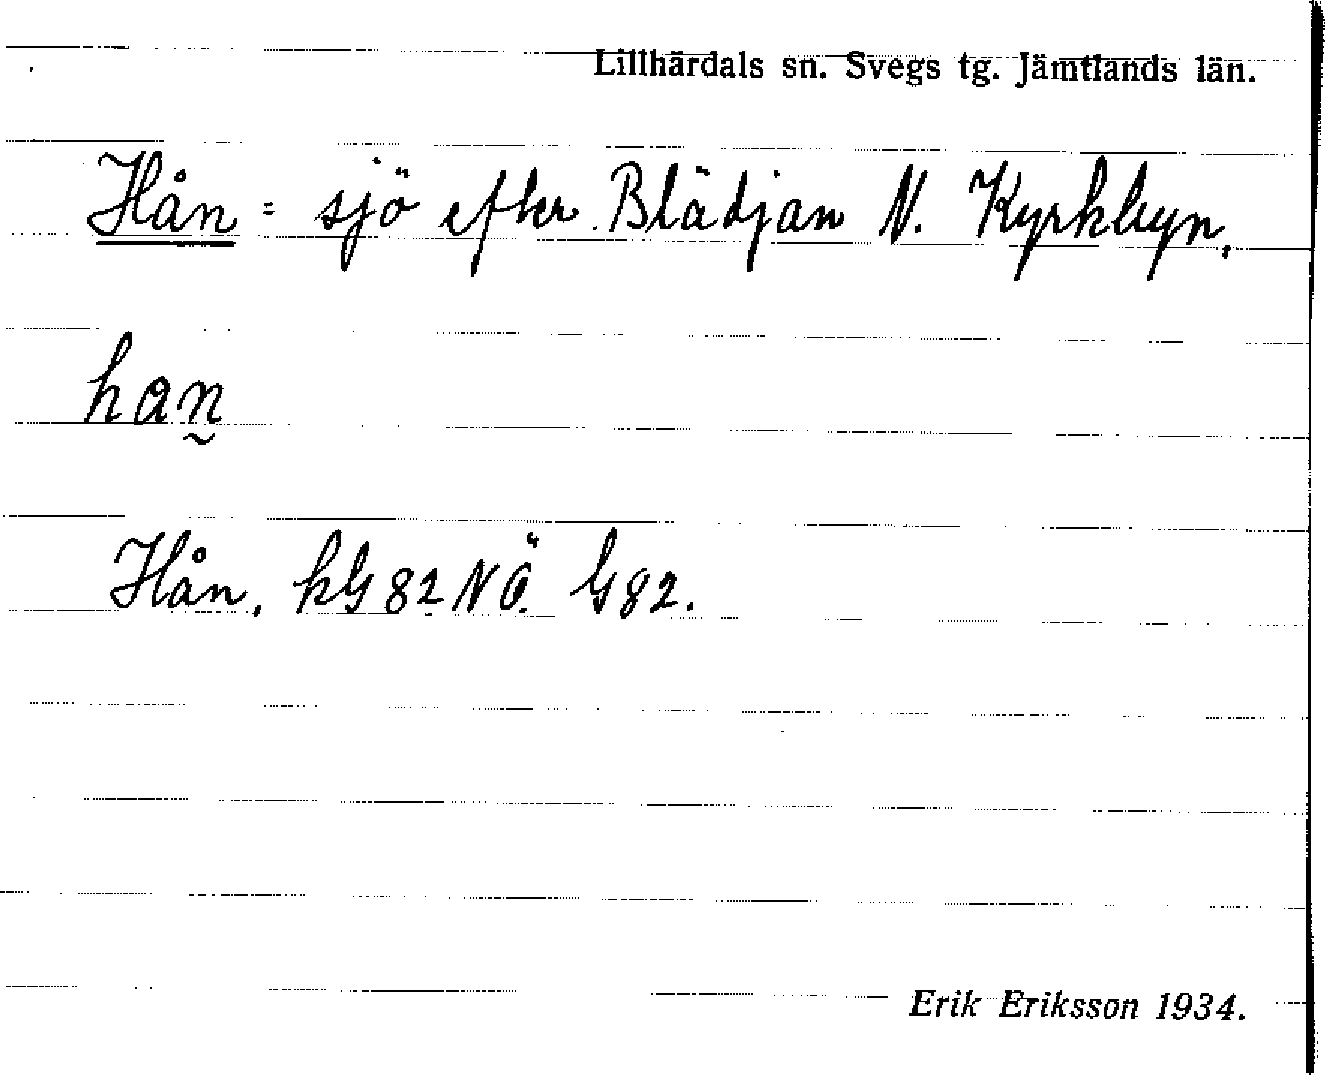 Lillhärdals sn. Svegs tg. Jämtlands län.
Hån = sjö efter Blädjan N. Kyrkbyn.
han̰
Hån. kG 82 NÖ. G 82.
Erik Eriksson 1934.